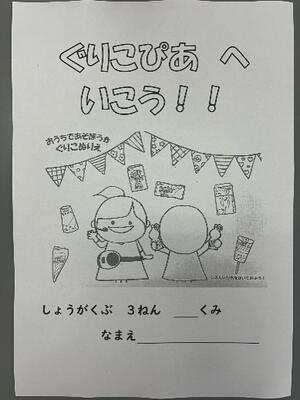 ぐりこぴあ へ
いこう！！
おうちであそぼうかい
ぐりこぬりえ
しょうがくぶ 3ねん ___くみ
なまえ_______________